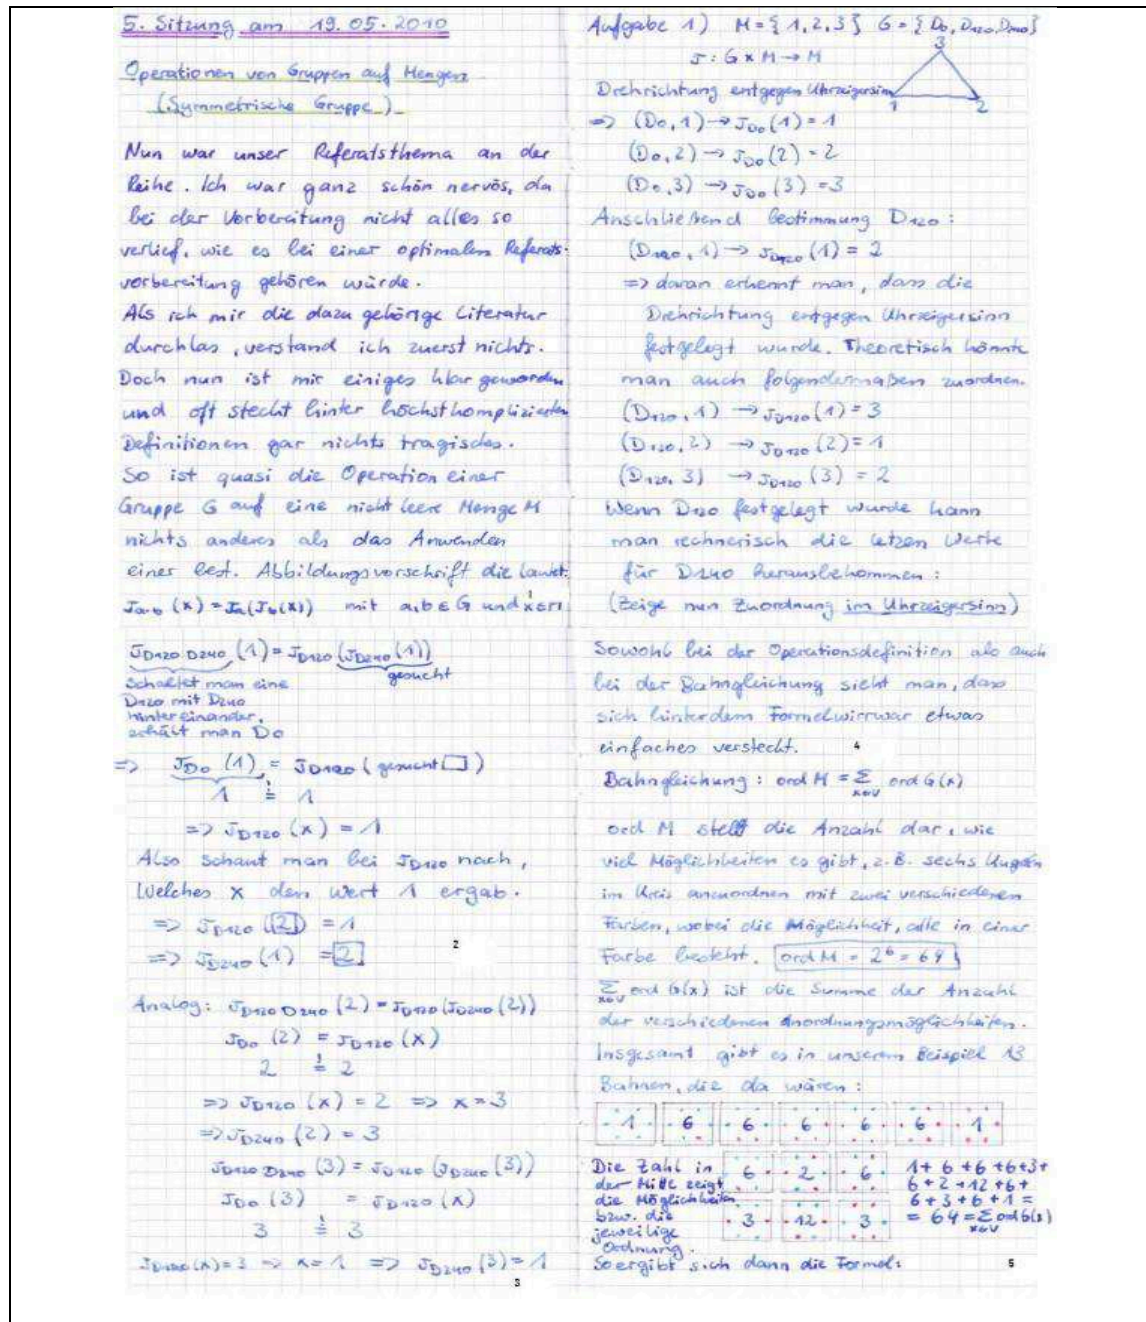 5. Sitzung am 19.05.2010
Operationen von Gruppen auf Mengen
(Symmetrische Gruppe)
Nun war unser Referatsthema an der
Reihe. Ich war ganz schön nervös, da
bei der Vorbereitung nicht alles so
verlief, wie es bei einer optimalen Referats-
vorbereitung gehören würde.
Als ich mir die dazu gehörige Literatur
durchlas, verstand ich zuerst nichts.
Doch nun ist mir einiges klar geworden
und oft steckt hinter höchst komplizierten
Definitionen gar nichts tragisches.
So ist quasi die Operation einer
Gruppe G auf eine nicht leere Menge M
nichts anderes als das Anwenden
einer best. Abbildungsvorschrift die lautet:
J_{a·b}(x) = J_a(J_b(x)) mit a,b ∈ G und x ∈ M
J_{D120 D240}(1) = J_{D120}(J_{D240}(1))
gesucht
Schaltet man eine
D120 mit D240
hintereinander,
erhält man D0
=> J_{D0}(1) = J_{D120}(gesucht □)
1 ≟ 1
=> J_{D120}(x) = 1
Also schaut man bei J_{D120} nach,
Welches x den Wert 1 ergab.
=> J_{D120}([2]) = 1
=> J_{D240}(1) = [2]
2
Analog: J_{D120 D240}(2) = J_{D120}(J_{D240}(2))
J_{D0}(2) = J_{D120}(x)
2 ≟ 2
=> J_{D120}(x) = 2 => x = 3
=> J_{D240}(2) = 3
J_{D120 D240}(3) = J_{D120}(J_{D240}(3))
J_{D0}(3) = J_{D120}(x)
3 ≟ 3
J_{D120}(x) = 3 => x = 1 => J_{D240}(3) = 1
3
Aufgabe 1) M = {1,2,3} G = {D0, D120, D240}
J : G × M → M
3
Drehrichtung entgegen Uhrzeigersinn
1 2
=> (D0, 1) → J_{D0}(1) = 1
(D0, 2) → J_{D0}(2) = 2
(D0, 3) → J_{D0}(3) = 3
Anschließend Bestimmung D120:
(D120, 1) → J_{D120}(1) = 2
=> daran erkennt man, dass die
Drehrichtung entgegen Uhrzeigersinn
festgelegt wurde. Theoretisch könnte
man auch folgendermaßen zuordnen.
(D120, 1) → J_{D120}(1) = 3
(D120, 2) → J_{D120}(2) = 1
(D120, 3) → J_{D120}(3) = 2
Wenn D120 festgelegt wurde kann
man rechnerisch die letzen Werte
für D240 herausbekommen:
(Zeige nun Zuordnung im Uhrzeigersinn)
Sowohl bei der Operationsdefinition als auch
bei der Bahngleichung sieht man, dass
sich hinter dem Formelwirrwar etwas
einfaches versteckt.
4
Bahngleichung: ord M = Σ_{x∈V} ord G(x)
ord M stellt die Anzahl dar, wie
viel Möglichkeiten es gibt, z.B. sechs Kugeln
im Kreis anzuordnen mit zwei verschiedenen
Farben, wobei die Möglichkeit, alle in einer
Farbe besteht. ord M = 2^6 = 64
Σ_{x∈V} ord G(x) ist die Summe der Anzahl
der verschiedenen Anordnungsmöglichkeiten.
Insgesamt gibt es in unserem Beispiel 13
Bahnen, die da wären:
1 6 6 6 6 6 1
6 2 6
3 12 3
Die Zahl in
der Mitte zeigt
die Möglichkeiten
bzw. die
jeweilige
Ordnung.
1 + 6 + 6 + 6 + 3 +
6 + 2 + 12 + 6 +
6 + 3 + 6 + 1 =
= 64 = Σ_{x∈V} ord G(x)
So ergibt sich dann die Formel:
5